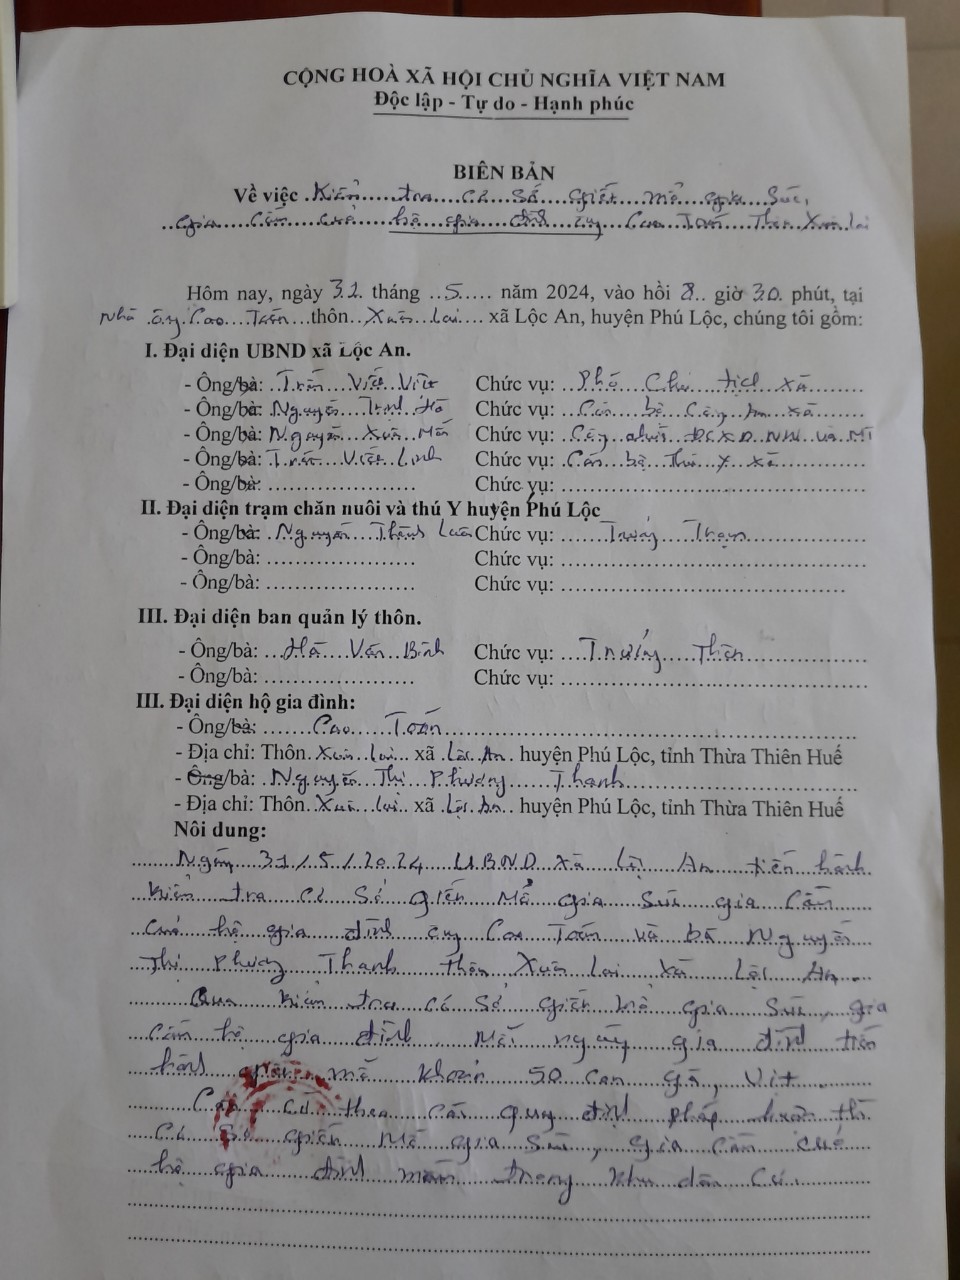 CỘNG HOÀ XÃ HỘI CHỦ NGHĨA VIỆT NAM
Độc lập - Tự do - Hạnh phúc
BIÊN BẢN
Về việc Kiểm tra cơ sở giết mổ gia súc,
gia cầm của hộ gia đình ông Cao Toán Thôn Xuân Lai
Hôm nay, ngày 31 tháng 5 năm 2024, vào hồi 8 giờ 30 phút, tại
nhà ông Cao Toán thôn Xuân Lai xã Lộc An, huyện Phú Lộc, chúng tôi gồm:
I. Đại diện UBND xã Lộc An.
- Ông/bà: Trần Viết Việt Chức vụ: Phó Chủ tịch xã
- Ông/bà: Nguyễn Chức vụ: Cán bộ Công an xã
- Ông/bà: Nguyễn Xuân Mẫn Chức vụ: Công chức ĐCXD.NN và MT
- Ông/bà: Trần Viết Linh Chức vụ: Cán bộ Thú y xã
- Ông/bà: Chức vụ:
II. Đại diện trạm chăn nuôi và thú Y huyện Phú Lộc
- Ông/bà: Nguyễn Thành Chức vụ: Trưởng Trạm
- Ông/bà: Chức vụ:
- Ông/bà: Chức vụ:
III. Đại diện ban quản lý thôn.
- Ông/bà: Hà Văn Bình Chức vụ: Trưởng Thôn
- Ông/bà: Chức vụ:
III. Đại diện hộ gia đình:
- Ông/bà: Cao Toán
- Địa chỉ: Thôn Xuân Lai xã Lộc An huyện Phú Lộc, tỉnh Thừa Thiên Huế
- Ông/bà: Nguyễn Thị Phương Thanh
- Địa chỉ: Thôn Xuân Lai xã Lộc An huyện Phú Lộc, tỉnh Thừa Thiên Huế
Nôi dung:
Ngày 31/5/2024 UBND xã Lộc An tiến hành
kiểm tra cơ sở giết mổ gia súc gia cầm
của hộ gia đình ông Cao Toán và bà Nguyễn
Thị Phương Thanh thôn Xuân Lai xã Lộc An.
Qua kiểm tra cơ sở giết mổ gia súc, gia
cầm hộ gia đình mỗi ngày gia đình tiến
hành giết mổ khoản 50 con gà, vịt.
Căn cứ theo các quy định pháp luật thì
cơ sở giết mổ gia súc, gia cầm của
hộ gia đình nằm trong khu dân cư.